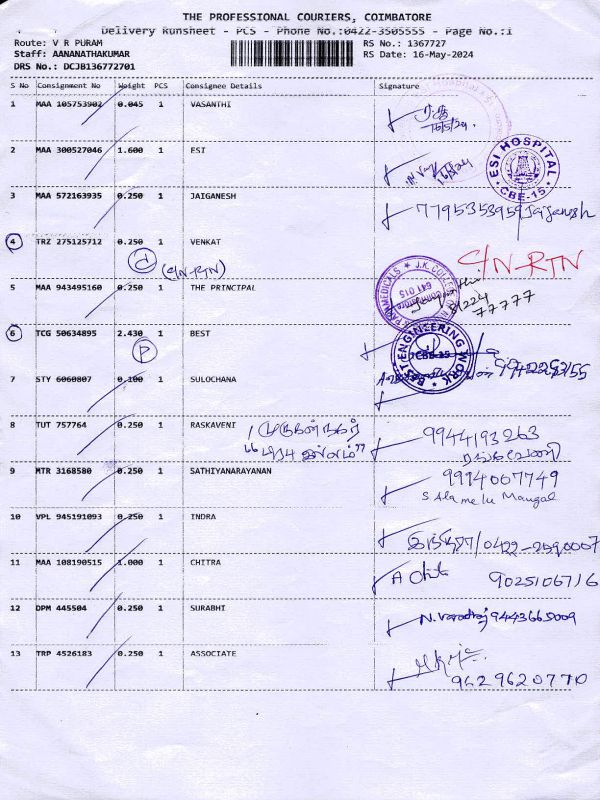 THE PROFESSIONAL COURIERS, COIMBATORE
Delivery Runsheet - PCS - Phone No.:0422-3505555 - Page No.:1
Route: V R PURAM
RS No.: 1367727
Staff: AANANATHAKUMAR
RS Date: 16-May-2024
DRS No.: DCJB136772701
S No Consignment No Weight PCS Consignee Details Signature
1 MAA 105753902 0.045 1 VASANTHI
16/5/24
2 MAA 300527046 1.600 1 ESI
16/5/24
ESI HOSPITAL
CBE-15
3 MAA 572163935 0.250 1 JAIGANESH 7795353959 Jaiganesh
4 TRZ 275125712 0.250 1 VENKAT
C/N-RTN
(C/N-RTN)
5 MAA 943495160 0.250 1 THE PRINCIPAL
641 015
77777
6 TCG 50634895 2.430 1 BEST
P
BEST ENGINEERING WORK
CBE-15
7 STY 6060807 0.100 1 SULOCHANA
8 TUT 757764 0.250 1 RASKAVENI 9944193263
முருகன் நகர்
9 MTR 3168580 0.250 1 SATHIYANARAYANAN 9994007749
S Alamelu Mangal
10 VPL 945191093 0.250 1 INDRA
11 MAA 108190515 1.000 1 CHITRA
9025106716
12 DPM 445504 0.250 1 SURABHI N. Varadraj 9443665009
13 TRP 4526183 0.250 1 ASSOCIATE
9629620770